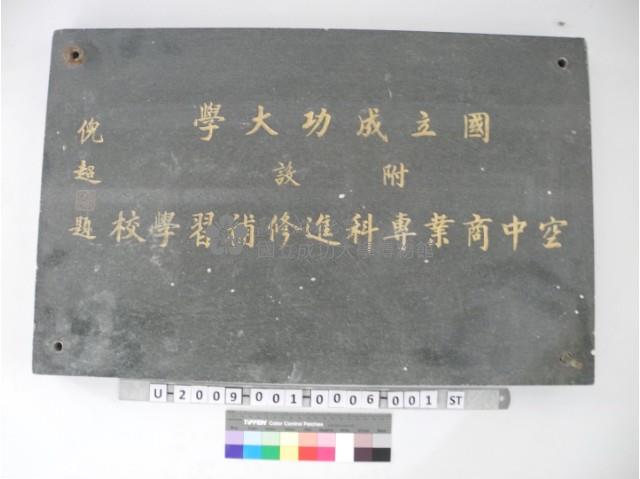 國立成功大學
附設
空中商業專科進修補習學校
倪超題
國立成功大學博物館
U-2009-001-0006-001 ST
TIFFEN Color Control Patches